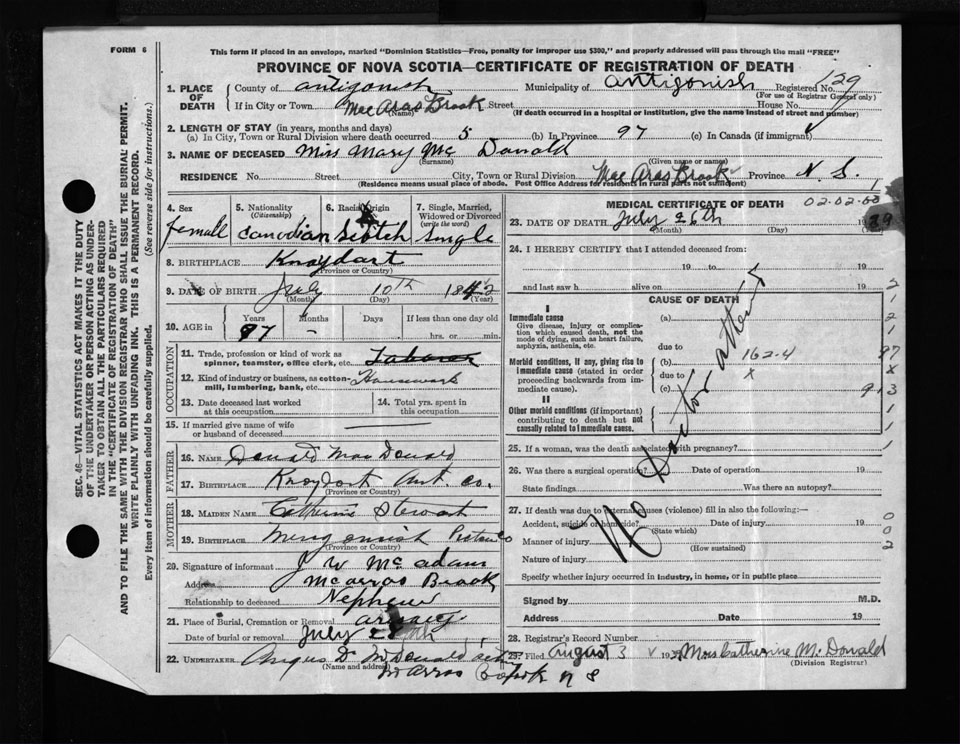 FORM 6
This form if placed in an envelope, marked "Dominion Statistics—Free, penalty for improper use $300," and properly addressed will pass through the mail "FREE"
PROVINCE OF NOVA SCOTIA—CERTIFICATE OF REGISTRATION OF DEATH
1. PLACE OF DEATH
County of Antigonish Municipality of Antigonish Registered No. 129
(For use of Registrar General only)
If in City or Town Mac Aras Brook Street House No.
(Name) (If death occurred in a hospital or institution, give the name instead of street and number)
2. LENGTH OF STAY (in years, months and days)
(a) In City, Town or Rural Division where death occurred 5 (b) In Province 97 (c) In Canada (if immigrant)
3. NAME OF DECEASED Miss Mary Mc Donald
(Surname) (Given name or names)
RESIDENCE No. Street City, Town or Rural Division Mac Aras Brook Province N. S.
(Residence means usual place of abode. Post Office Address for residents in rural parts not sufficient)
4. Sex
femall
5. Nationality (Citizenship)
Canadian
6. Racial Origin
Scotch
7. Single, Married, Widowed or Divorced (write the word)
Single
8. BIRTHPLACE Knoydart
(Province or Country)
9. DATE OF BIRTH July 10th 1842
(Month) (Day) (Year)
10. AGE in Years Months Days If less than one day old
97 – hrs. or min.
OCCUPATION
11. Trade, profession or kind of work as spinner, teamster, office clerk, etc.
12. Kind of industry or business, as cotton-mill, lumbering, bank, etc. Housework
13. Date deceased last worked at this occupation
14. Total yrs. spent in this occupation
15. If married give name of wife or husband of deceased
FATHER
16. NAME Donald MacDonald
17. BIRTHPLACE Knoydart Ant. Co.
(Province or Country)
MOTHER
18. MAIDEN NAME Catherine Stewart
19. BIRTHPLACE Merigomish Pictou Co
(Province or Country)
20. Signature of informant J W McAdam
Address McArras Brook
Relationship to deceased Nephew
21. Place of Burial, Cremation or Removal Arisaig
Date of burial or removal July
22. UNDERTAKER Angus D McDonald
(Name and address)
McArras Brook N S
MEDICAL CERTIFICATE OF DEATH
23. DATE OF DEATH July 26th 1939
(Month) (Day) (Year)
24. I HEREBY CERTIFY that I attended deceased from:
19 to 19
and last saw h alive on 19
CAUSE OF DEATH
I
Immediate cause (a)
Give disease, injury or complication which caused death, not the mode of dying, such as heart failure, asphyxia, asthenia, etc.
due to
Morbid conditions, if any, giving rise to immediate cause (stated in order proceeding backwards from immediate cause). (b) 162-4
due to X
(c)
II
Other morbid conditions (if important) contributing to death but not causally related to immediate cause.
No Doctor
25. If a woman, was the death associated with pregnancy?
26. Was there a surgical operation? Date of operation 19
State findings Was there an autopsy?
27. If death was due to external causes (violence) fill in also the following:—
Accident, suicide or homicide? Date of injury 19
(State which)
Manner of injury
(How sustained)
Nature of injury
Specify whether injury occurred in industry, in home, or in public place
Signed by M.D.
Address Date 19
28. Registrar's Record Number
29. Filed August 3 19 Mrs Catherine McDonald
(Division Registrar)
SEC. 46—VITAL STATISTICS ACT MAKES IT THE DUTY OF THE UNDERTAKER OR PERSON ACTING AS UNDERTAKER TO OBTAIN ALL THE PARTICULARS REQUIRED IN THE "CERTIFICATE OF REGISTRATION OF DEATH" AND TO FILE THE SAME WITH THE DIVISION REGISTRAR WHO SHALL ISSUE THE BURIAL PERMIT.
WRITE PLAINLY WITH UNFADING INK. THIS IS A PERMANENT RECORD.
Every item of information should be carefully supplied. (See reverse side for instructions.)